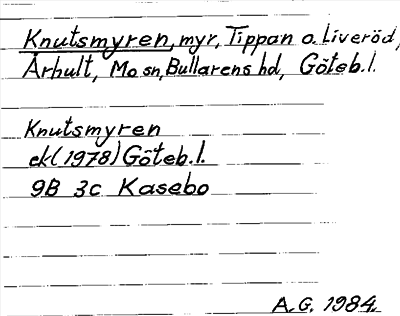 Knutsmyren, myr, Tippan o. Liveröd,
Århult, Mo sn, Bullarens hd, Göteb.l.
Knutsmyren
ek (1978) Göteb.l.
9B 3c Kasebo
A.G. 1984.